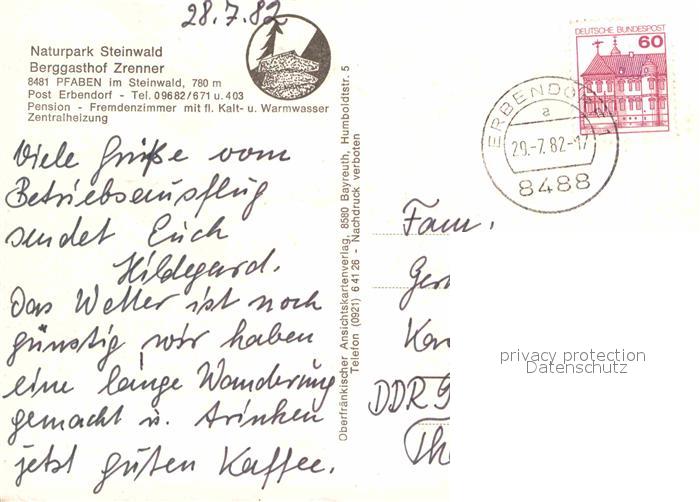 28.7.82
Naturpark Steinwald
Berggasthof Zrenner
8481 PFABEN im Steinwald, 780 m
Post Erbendorf - Tel. 09682/671 u. 403
Pension - Fremdenzimmer mit fl. Kalt- u. Warmwasser
Zentralheizung
Viele Grüße vom
Betriebsausflug
sendet Euch
Hildegard.
Das Wetter ist noch
günstig wir haben
eine lange Wanderung
gemacht u. trinken
jetzt guten Kaffee.
Oberfränkischer Ansichtskartenverlag, 8580 Bayreuth, Humboldtstr. 5
Telefon (0921) 6 41 26 - Nachdruck verboten
DEUTSCHE BUNDESPOST
60
ERBENDO
a
29.-7.82-17
8488
Fam.
DDR
privacy protection
Datenschutz